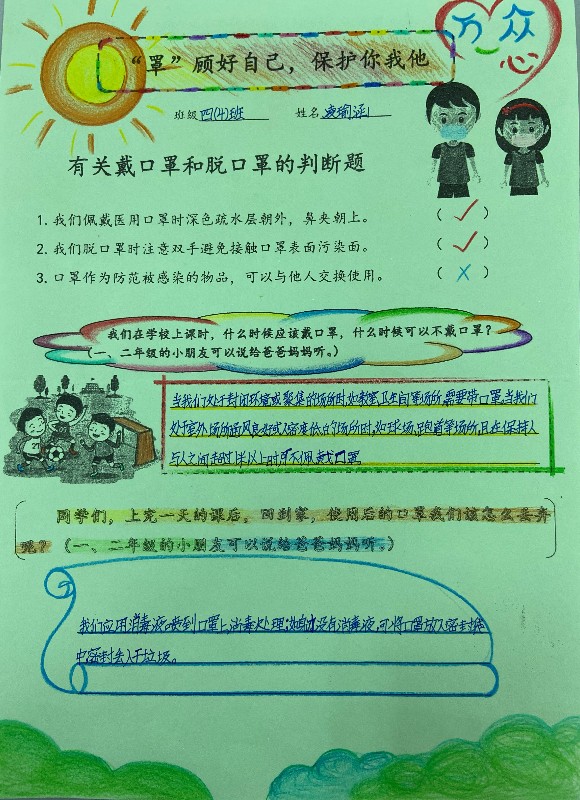 万众
心
“罩”顾好自己，保护你我他
班级 四(4)班 姓名 凌瑜涵
有关戴口罩和脱口罩的判断题
1. 我们佩戴医用口罩时深色疏水层朝外，鼻夹朝上。 （ ✓ ）
2. 我们脱口罩时注意双手避免接触口罩表面污染面。 （ ✓ ）
3. 口罩作为防范被感染的物品，可以与他人交换使用。 （ X ）
我们在学校上课时，什么时候应该戴口罩，什么时候可以不戴口罩？
（一、二年级的小朋友可以说给爸爸妈妈听。）
当我们处于封闭环境或聚集的场所时，如教室、卫生间等场所，需要带口罩。当我们
处于室外场所通风良好或人密度低的场所时，如球场、跑道等场所，且在保持人
与人之间超过1米以上时，可不佩戴口罩。
同学们，上完一天的课后，回到家，使用后的口罩我们该怎么丢弃
呢？（一、二年级的小朋友可以说给爸爸妈妈听。）
我们应用消毒液喷到口罩上消毒处理；如自己没有消毒液，可将口罩放入密封袋
中密封丢入干垃圾。